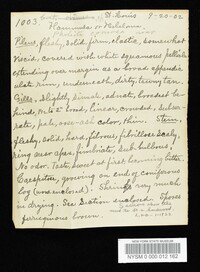 of St. Louis 9-20-02
1003. Flammula or Pholiota
Pileus, fleshy, solid, firm, elastic, somewhat
viscid, covered with squamous pellicle
extending over margin as a broad appendic-
ulate rim, underneath, dirty tawny tan.
Gills. Slightly sinuate, adnate, rounded be-
hind, broad, linear, crowded, subser-
rate, pale, ash color, thin. Stem,
fleshy, solid, hard, fibrous, fibrillose scaly,
ring near apex, fimbriate, sub-bulbous.
No odor. Taste sweet at first becoming bitter.
Caespitose, growing on end of coniferous
log (one enclosed). Shrinks very much
in drying. See Section enclosed. Spores
ferruginous brown.
NEW YORK STATE MUSEUM
NYSM 0 000 012 162